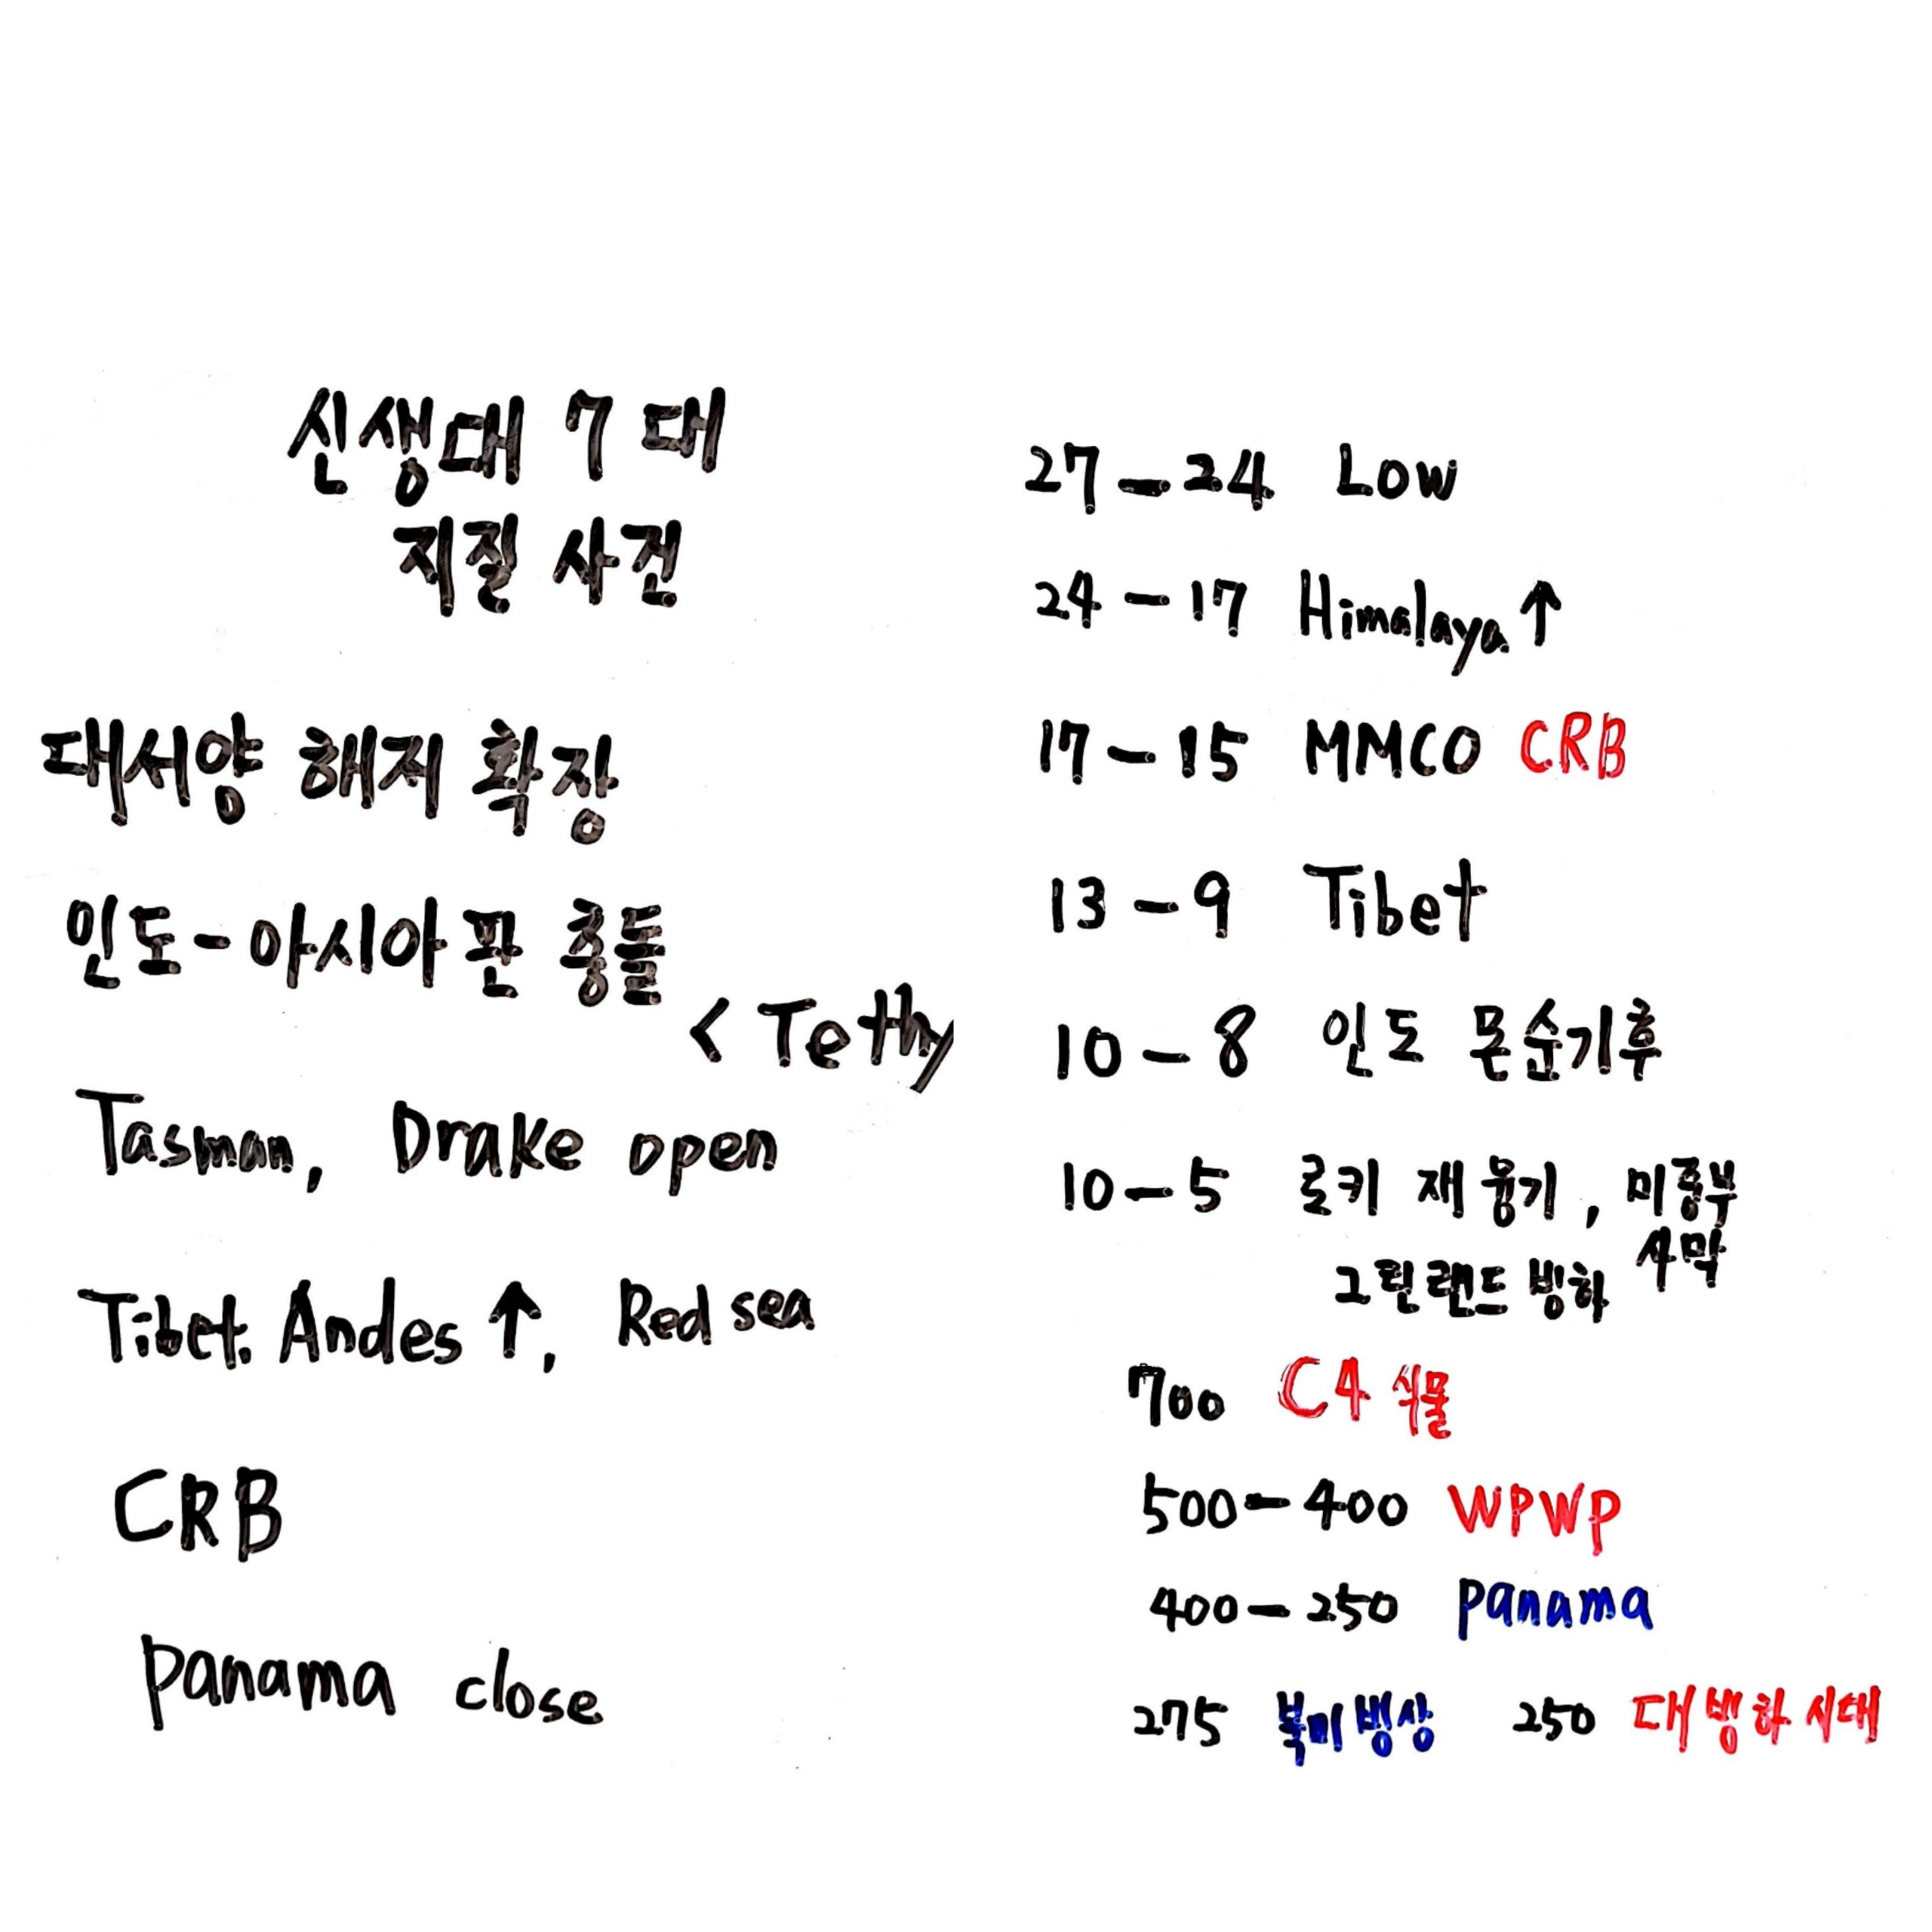 신생대 7대
지질 사건
대서양 해저 확장
인도-아시아 판 충돌
< Tethy
Tasman, Drake open
Tibet. Andes ↑, Red sea
CRB
panama close
27 - 24 Low
24 - 17 Himalaya ↑
17 - 15 MMCO CRB
13 - 9 Tibet
10 - 8 인도 몬순기후
10 - 5 로키 재융기, 미중부
사막
그린랜드 빙하
700 C4 식물
500 - 400 WPWP
400 - 250 panama
275 북미빙상 250 대빙하시대